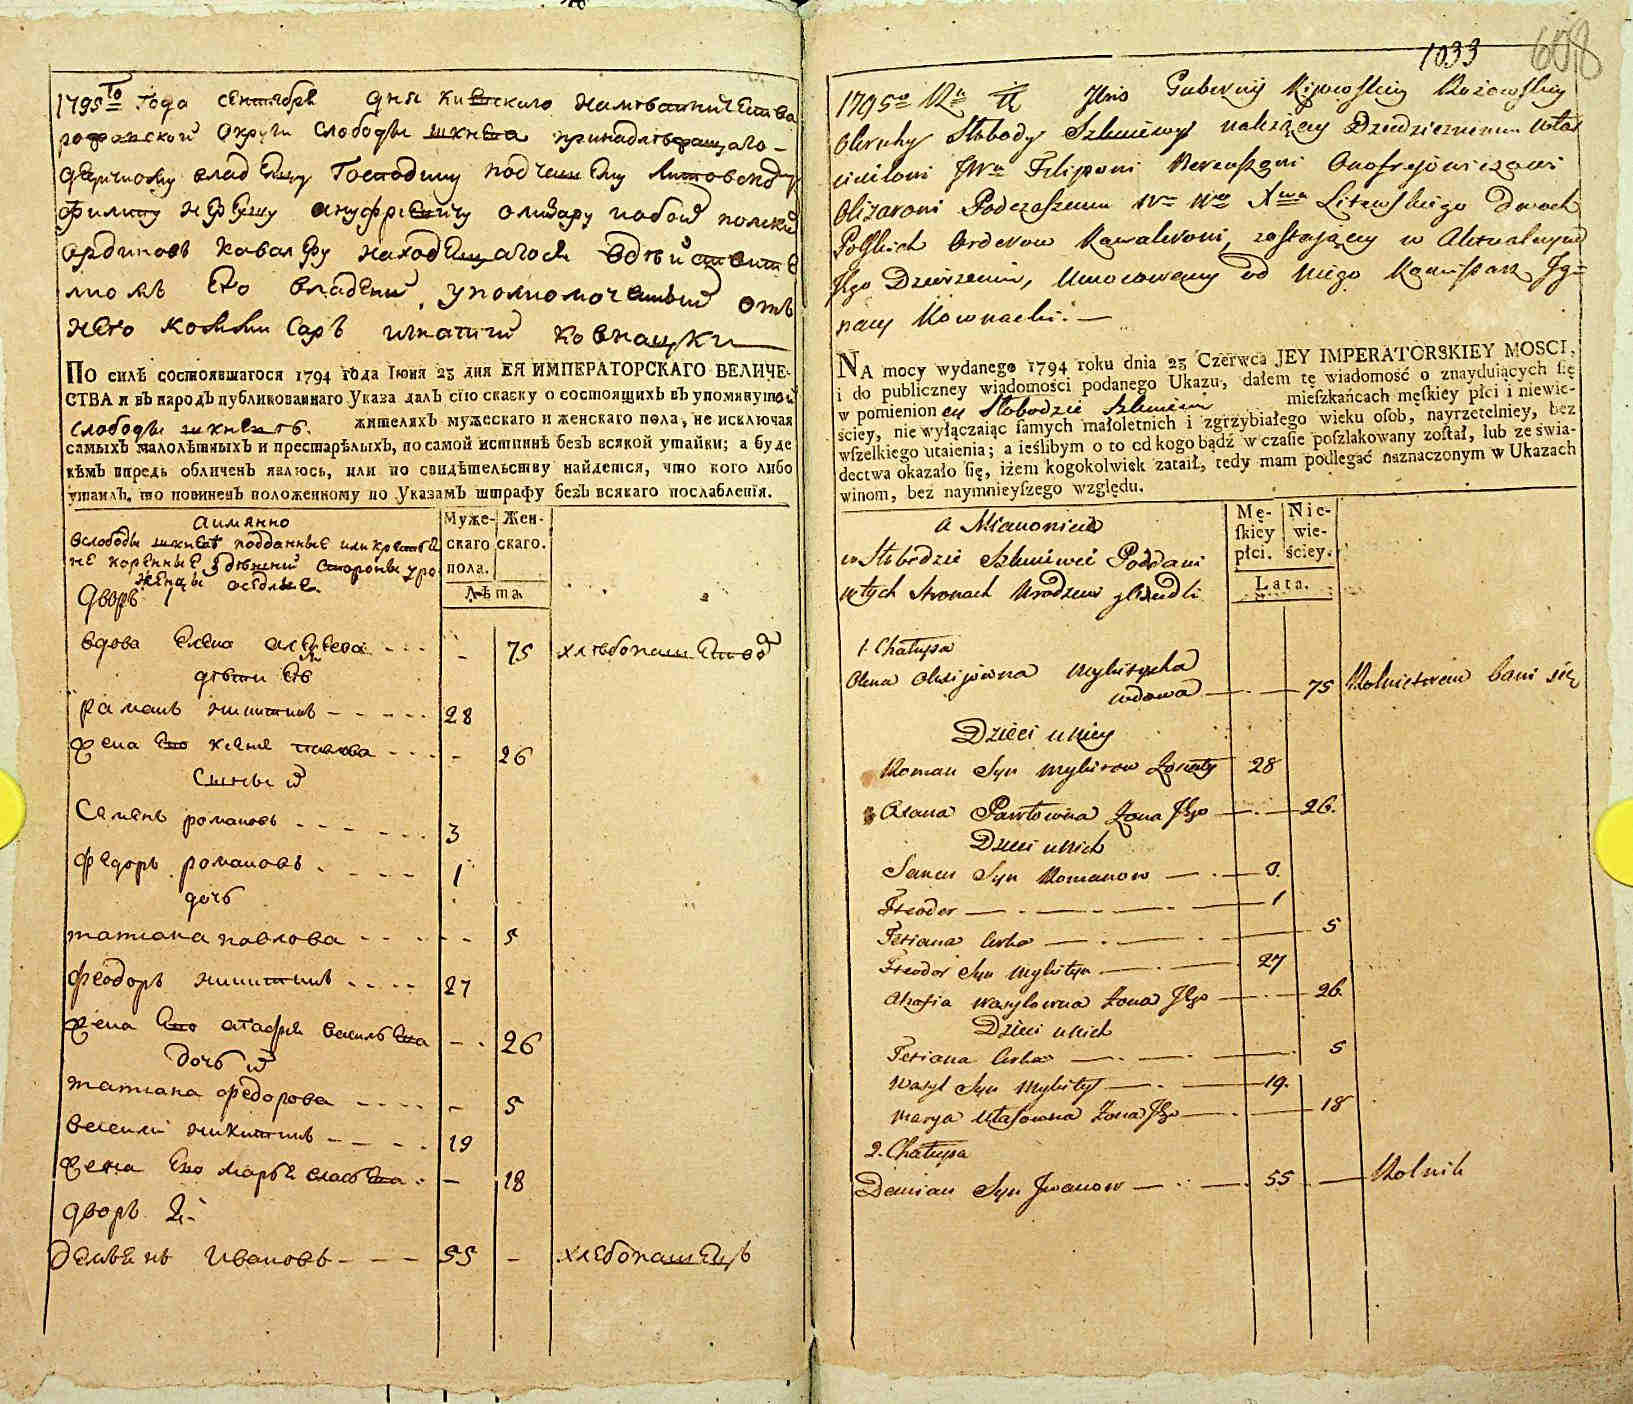 1795го года сентября дня Киевского наместничества
округи слободы шкнева
владельцу Господину подчашему Литовскому
Филипу Нереушу ануфриевичу олизару обоих полских
ординовъ кавалеру находящагося в действител
его владении, уполномоченный отъ
него коммисаръ игнатий ковнацки
По силѣ состоявшагося 1794 года Іюня 23 дня ЕЯ ИМПЕРАТОРСКАГО ВЕЛИЧЕ-
СТВА и въ народъ публикованнаго Указа далъ сію скаску о состоящихъ въ упомянутой
слободы шкневъ. жителяхъ мужескаго и женскаго пола, не исключая
самыхъ малолѣтныхъ и престарѣлыхъ, по самой истиннѣ безъ всякой утайки; а буде
кѣмъ впредь обличенъ явлюсь, или по свидѣтельству найдется, что кого либо
утаилъ, то повиненъ положенному по Указамъ штрафу безъ всякаго послабленія.
аимянно
вслободы подданные или
не коренные стороны уро
женцы оседлые.
Муже- Жен-
скаго скаго.
пола.
Лѣта
Дворъ
вдова Елена алексеева - 75 хлебопашествой
дети Ее
раманъ никитинъ 28
жена Его ксеня павлова - 26
Сыны их
Семенъ романовъ 3
федоръ романовъ 1
дочь
татиана павлова - 5
феодоръ никитинъ 27
жена Его агафия василева - 26
дочь их
татиана федорова - 5
василий никитинъ 19
жена Его марья власова - 18
дворъ 2й
демьянъ Ивановъ 55 - хлебопашецъ
1033
608
1795go Rku Jbris Gubernij Kijowskiey
Okruhy Słobody Szkniewy należącey Dziedzicznemu Wła
JWu Filipowi Nereuszowi Onofrejowiczowi
Olizarowi Podczaszemu Wo Wgo Xwa Litewskiego dwoch
Polskich Orderow Kawalerowi, zostaiącey w Aktualnym
Jego Dzierżeniu, Umocowany od niego Kommissarz Jg=
nacy Kownacki.—
NA mocy wydanego 1794 roku dnia 23 Czerwca JEY IMPERATORSKIEY MOSCI,
i do publiczney wiadomości podanego Ukazu, dałem tę wiadomość o znayduiących się
w pomienion ey Słobodzie Szkniewie mieszkańcach męskiey płci i niewie-
ściey, nie wyłączaiąc samych małoletnich i zgrzybiałego wieku osob, nayrzetelniey, bez
wszelkiego utaienia; a ieślibym o to od kogo bądź w czasie poszlakowany został, lub ze świa-
dectwa okazało się, iżem kogokolwiek zataił, tedy mam podlegać naznaczonym w Ukazach
winom, bez naymnieyszego względu.
a Mianowicie
w Słobodzie Szkniewie Poddani
w tych stronach Urodzeni y osiedli
Mę- Nie-
skiey wie-
płci. ściey.
Lata.
1. Chałupa
Olena Olexijowna Mykitycha
wdowa 75 Rolnictwem bawi się
Dzieci u niey
Roman Syn Mykitow Żonaty 28
Oxana Pawłowna Żona Jego 26.
Dzieci u nich
Semen Syn Romanow 3.
Fteodor 1
Tetiana Corka 5
Fteodor Syn Mykityn 27
Ahafia Wasylowna Żona Jego 26
Dzieci u nich
Tetiana Corka 5
Wasyl Syn Mykityn 19.
Marya Własowna Żona Jego 18
2. Chałupa
Demian Syn Jwanow 55 Rolnik